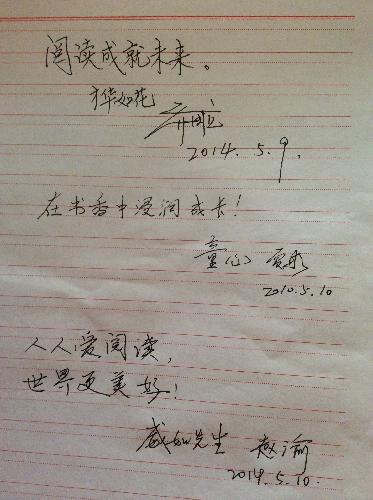 阅读成就未来。
才华如花
2014.5.9.
在书香中浸润成长!
童心
2010.5.10
人人爱阅读,
世界更美好!
感如先生 赵谕
2014.5.10.